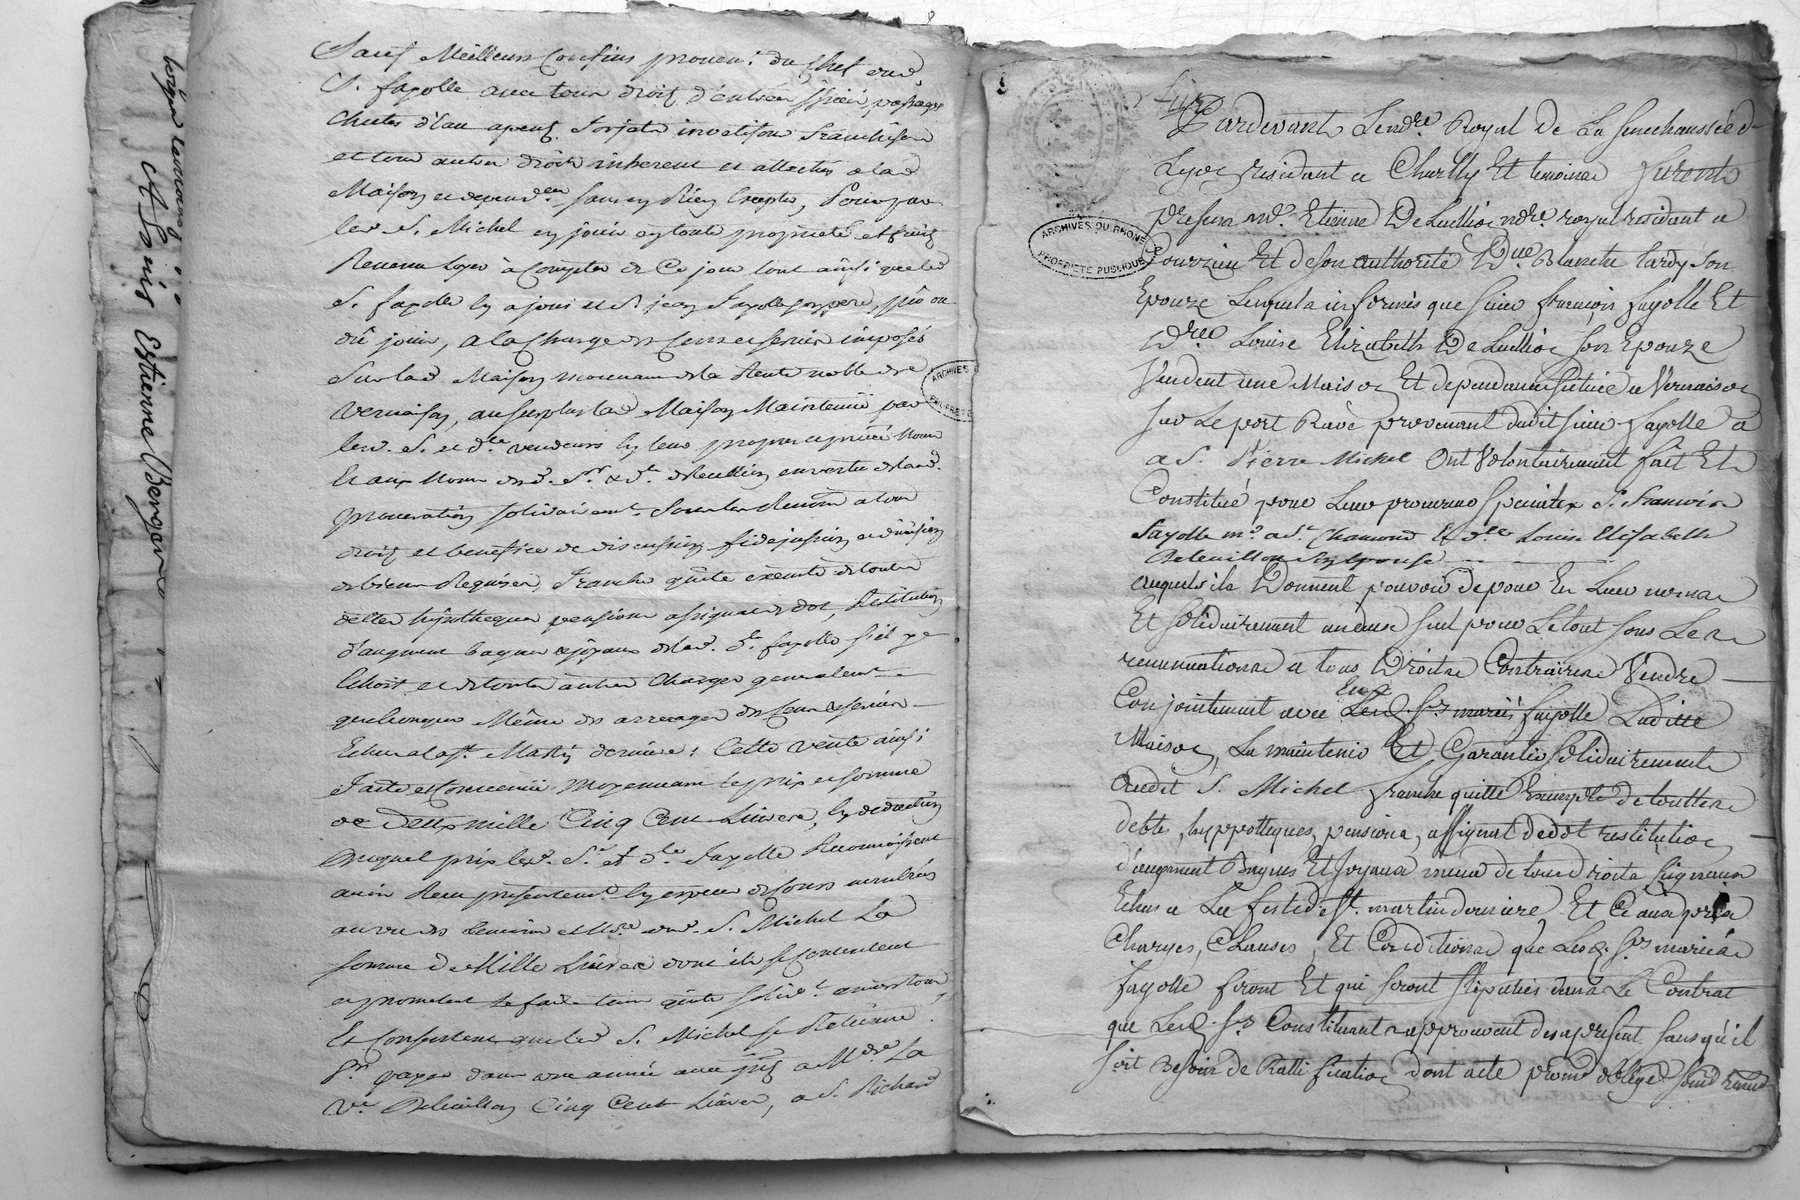 Sauf Meilleurs Confins proven.t du Chef dud.
S. fayolle avec tous droits d'entrée sortie passages
Chutes d'eau apens. forjets investisons franchises
et tous autres droits inherent et attachés a lad.
Maison et depend.ces sans en Rien Excepter, Pour par
led. S. Michel en jouir en toute proprieté et fruits
Revenu Loyer à Compter de Ce jour tout ainsi que led.
S. fayolle en a joui et S. jean fayolle son pere, ou
dû jouir, a la Charge des Cens et servis imposés
Sur lad. Maison mouvans de la Rente noble de
Vernaison, au surplus lad. Maison Maintenüe par
lesd. S. et d.lle vendeurs en leur propres et privés Noms
Et aux Noms desd. S.r & d.e deleullion en vertu de lad.
procuration solidairem.t sous les Renon.on a tous
droits et benefice de discussion fidejussion et division
de bien Requises, franche quitte exempte de toutes
dettes hypotheques pensions assignat de dot, Restitution
d'augment bagues & joyaux de lad. d.e fayolle s'il y
Echoit et de toutes autres Charges generalem.t
quelconques Même des arrerages des Cens & servis
Echus a la f.te S.t Martin derniere; Cette vente ainsi
faite et Convenüe Moyennant le prix et somme
de Deux mille Cinq Cent Livres, en deduction
duquel prix lesd. S.r et d.e fayolle Reconnoissent
avoir Reçu presentement en especes de Cours nombrées
au vu des temoins et No.re dud. S. Michel La
somme de Mille Livres dont ils se Contentent
et promettent le faire tenir quitte solid.t envers tous
Et Consentent que led. S. Michel se Retienne
P.r payer dans une année aux a Mad.e La
V.e Deleullion Cinq Cent Livres, a S. Richard
Estienne
ARCHIVES DU RHONE
PROPRIETE PUBLIQUE
Pardevant Le no.re Royal de La senechaussée de
Lyon residant a Charlly Et temoins furent
presens m.e Etienne De Leullion no.re royal residant a
Pourzieu Et de son authorité D.me Blanche tardy son
Epouze Lesquels informés que sieur françois fayolle Et
D.lle Louise Elizabeth De Leullion son Epouze
Vendent une Maison Et dependances située a Vernaison
sur Le port Ravé provenant dudit sieur fayolle a
a S. Pierre Michel Ont Volontairement fait Et
Constitué pour Leur procureurs speciaux S. francois
fayolle m.d a S.t Chamond Et d.lle Louise Elisabeth
Deleullion Son Epouse
auquels ils Donnent pouvoir de pour En Leur noms
Et solidairement un deux seul pour Le tout sous Les
renunciations a tous Droits Contraires Vendre
Conjointement avec Eux Lesd. S.rs mariés fayolle Laditte
Maison, La maintenir Et Garantir solidairement
Audit S. Michel franche quitte Exempte de touttes
debtes, hyppotteques, pensions, assignat de dot restitution
d'augment Bagues Et Joyaux meme de tous droits signeuriaux
Echus a La feste de S.t martin derniere Et Ce aux prix
Charges, Clauses, Et Conditions que Lesd. S.rs mariés
fayolle feront Et qui seront stipulées dans Le Contrat
que Lesd. S.rs Constituants approuvent des apresent sans qu'il
soit Besoin de Ratti fication, dont acte